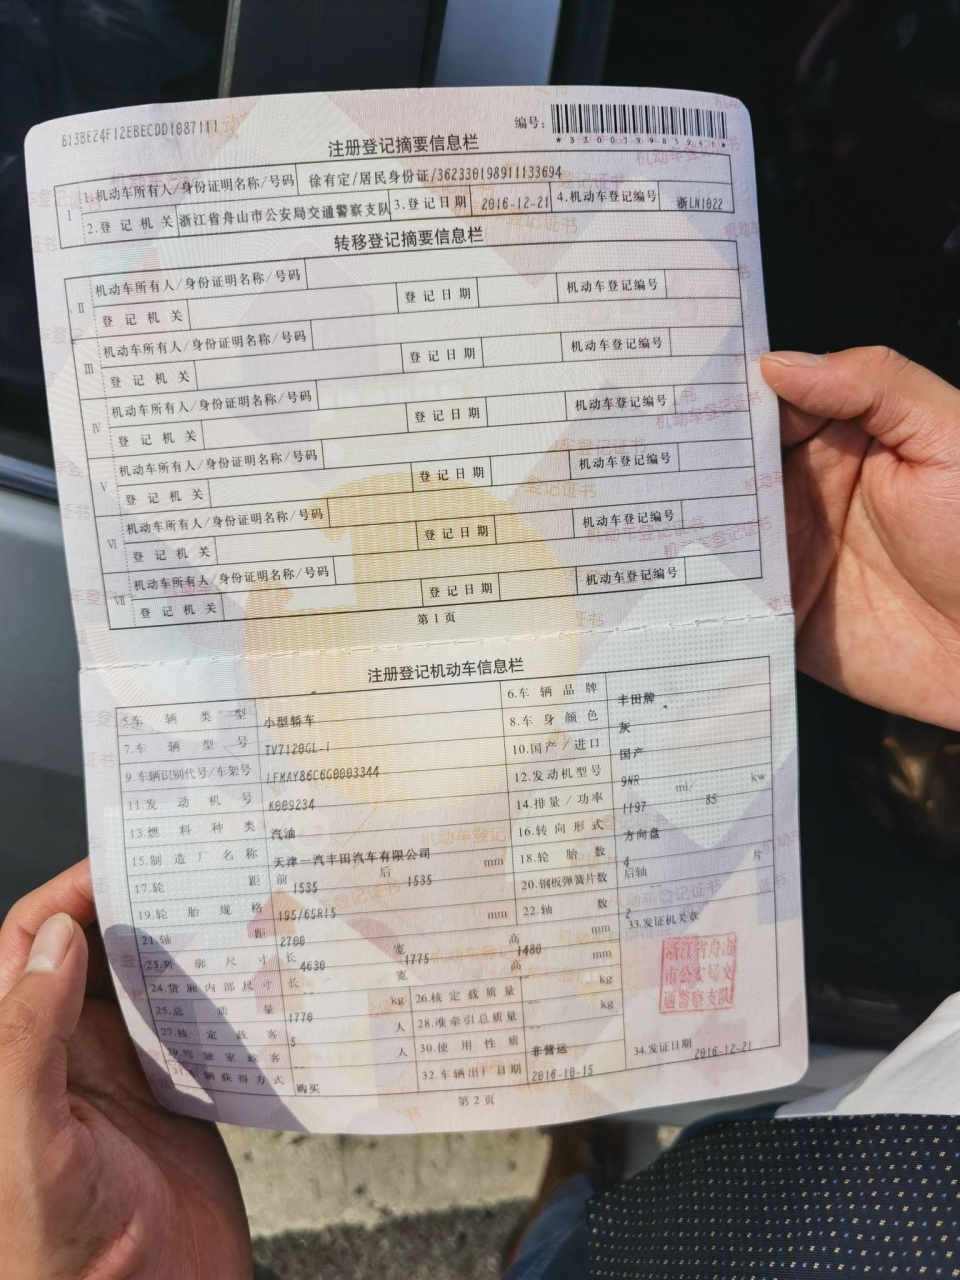 B13BE24F12EBECDD1087111
编号：
*330019985941*
注册登记摘要信息栏
Ⅰ 1.机动车所有人/身份证明名称/号码 徐有定/居民身份证/362330198911133694
2.登记机关 浙江省舟山市公安局交通警察支队 3.登记日期 2016-12-21 4.机动车登记编号 浙LN1022
转移登记摘要信息栏
Ⅱ 机动车所有人/身份证明名称/号码
登记机关 登记日期 机动车登记编号
Ⅲ 机动车所有人/身份证明名称/号码
登记机关 登记日期 机动车登记编号
Ⅳ 机动车所有人/身份证明名称/号码
登记机关 登记日期 机动车登记编号
Ⅴ 机动车所有人/身份证明名称/号码
登记机关 登记日期 机动车登记编号
Ⅵ 机动车所有人/身份证明名称/号码
登记机关 登记日期 机动车登记编号
Ⅶ 机动车所有人/身份证明名称/号码
登记机关 登记日期 机动车登记编号
第1页
注册登记机动车信息栏
5.车辆类型 小型轿车 6.车辆品牌 丰田牌
7.车辆型号 TV7120GL-i 8.车身颜色 灰
9.车辆识别代号/车架号 LFMAY86C6G0003344 10.国产/进口 国产
11.发动机号 K009234 12.发动机型号 9NR
13.燃料种类 汽油 14.排量/功率 1197 ml/ 85 kw
15.制造厂名称 天津一汽丰田汽车有限公司 16.转向形式 方向盘
17.轮距 前 1535 后 1535 mm 18.轮胎数 4
19.轮胎规格 195/65R15 20.钢板弹簧片数 后轴 片
21.轴距 2700 mm 22.轴数 2
23.外廓尺寸 长 4630 宽 1775 高 1480 mm 33.发证机关章
24.货厢内部尺寸 长 -- 宽 -- 高 -- mm
浙江省舟山市公安局交通警察支队
25.总质量 1770 kg 26.核定载质量 -- kg
27.核定载客 5 人 28.准牵引总质量 -- kg
29.驾驶室载客 -- 人 30.使用性质 非营运
31.车辆获得方式 购买 32.车辆出厂日期 2016-10-15 34.发证日期 2016-12-21
第2页